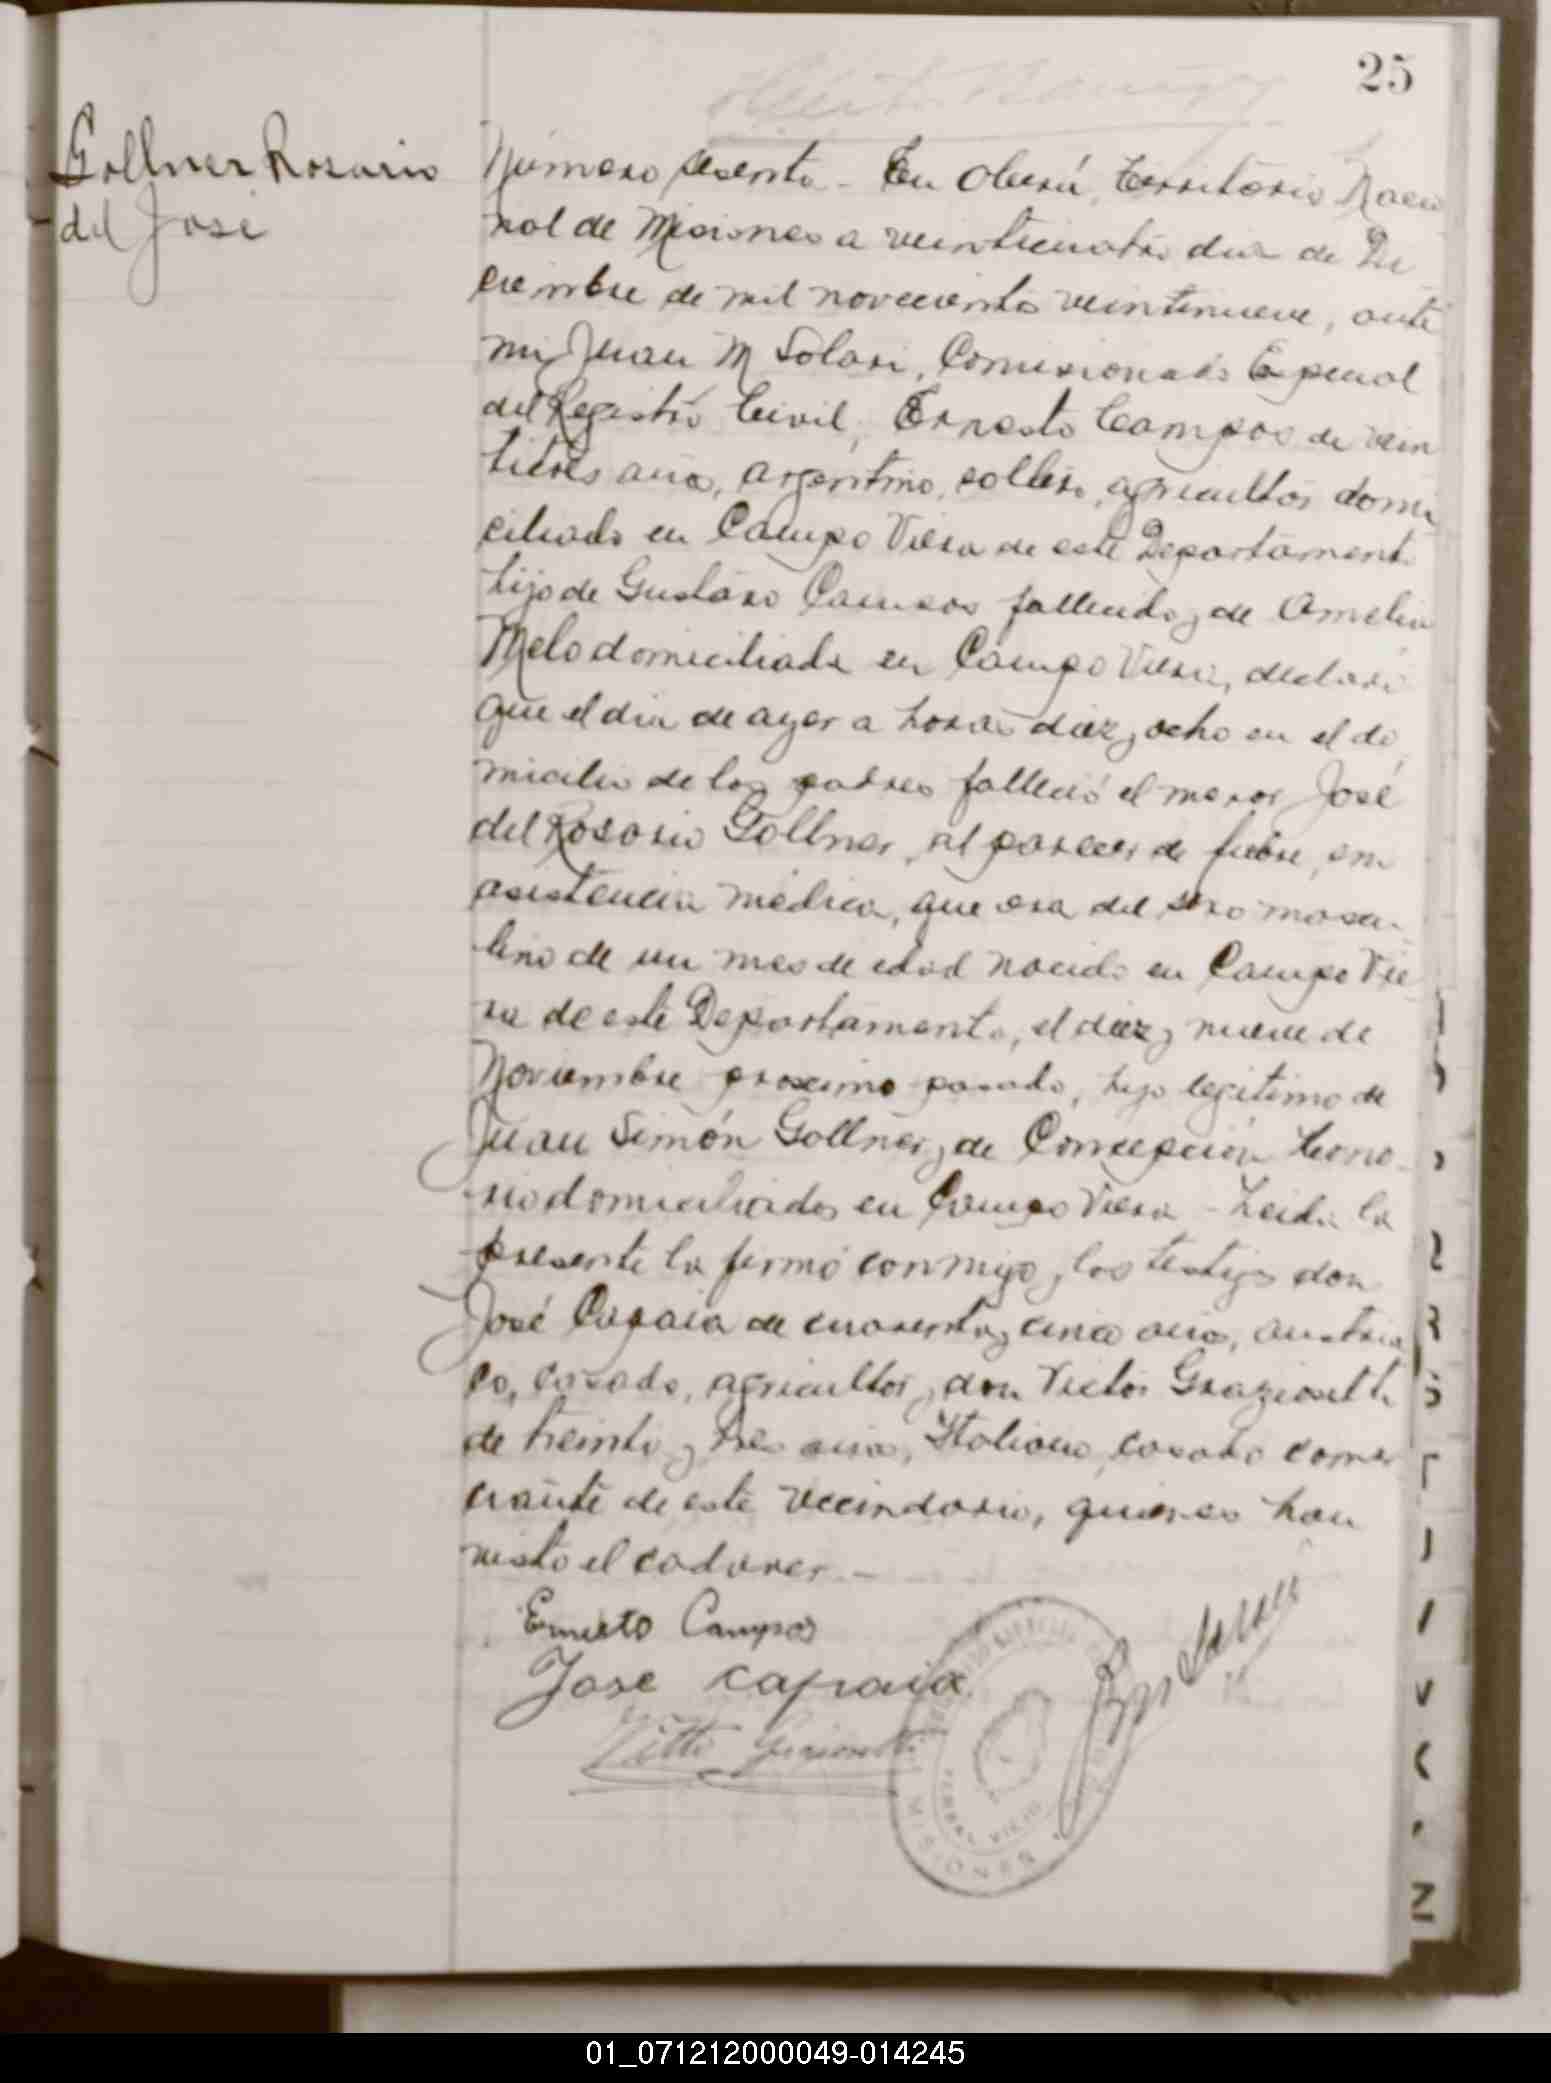 25
Gollner Rosario
del José
Número sesenta - En Oberá, Territorio Nacio
nal de Misiones a veinticuatro dia de Di
ciembre de mil novecientos veintinueve, ante
mi Juan M Solari, Comisionado Especial
del Registro Civil, Ernesto Campos de vein
titres años, argentino, soltero, agricultor domi
ciliado en Campo Viera de este Departamento
hijo de Gustavo Campos fallecido y de Amelia
Melo domiciliada en Campo Viera, declaró
que el dia de ayer a horas diez y ocho en el do
micilio de los padres falleció el menor José
del Rosario Gollner, al parecer de fiebre, sin
asistencia médica, que era del sexo mascu-
lino de un mes de edad nacido en Campo Vie
ra de este Departamento, el diez y nueve de
Noviembre proximo pasado, hijo legitimo de
Juan Simón Gollner y de Concepción
domiciliados en Campo Viera - Leida la
presente la firmó conmigo y los testigos don
José Capraia de cuarenta y cinco años, austria
co, casado, agricultor y don Victor Graziosetti
de treinta y tres años, Italiano, casado comer
ciante de este vecindario, quienes han
visto el cadaver. -
Ernesto Campos
Jose Capraia
MISIONES
YERBAL VIEJO
01_071212000049-014245